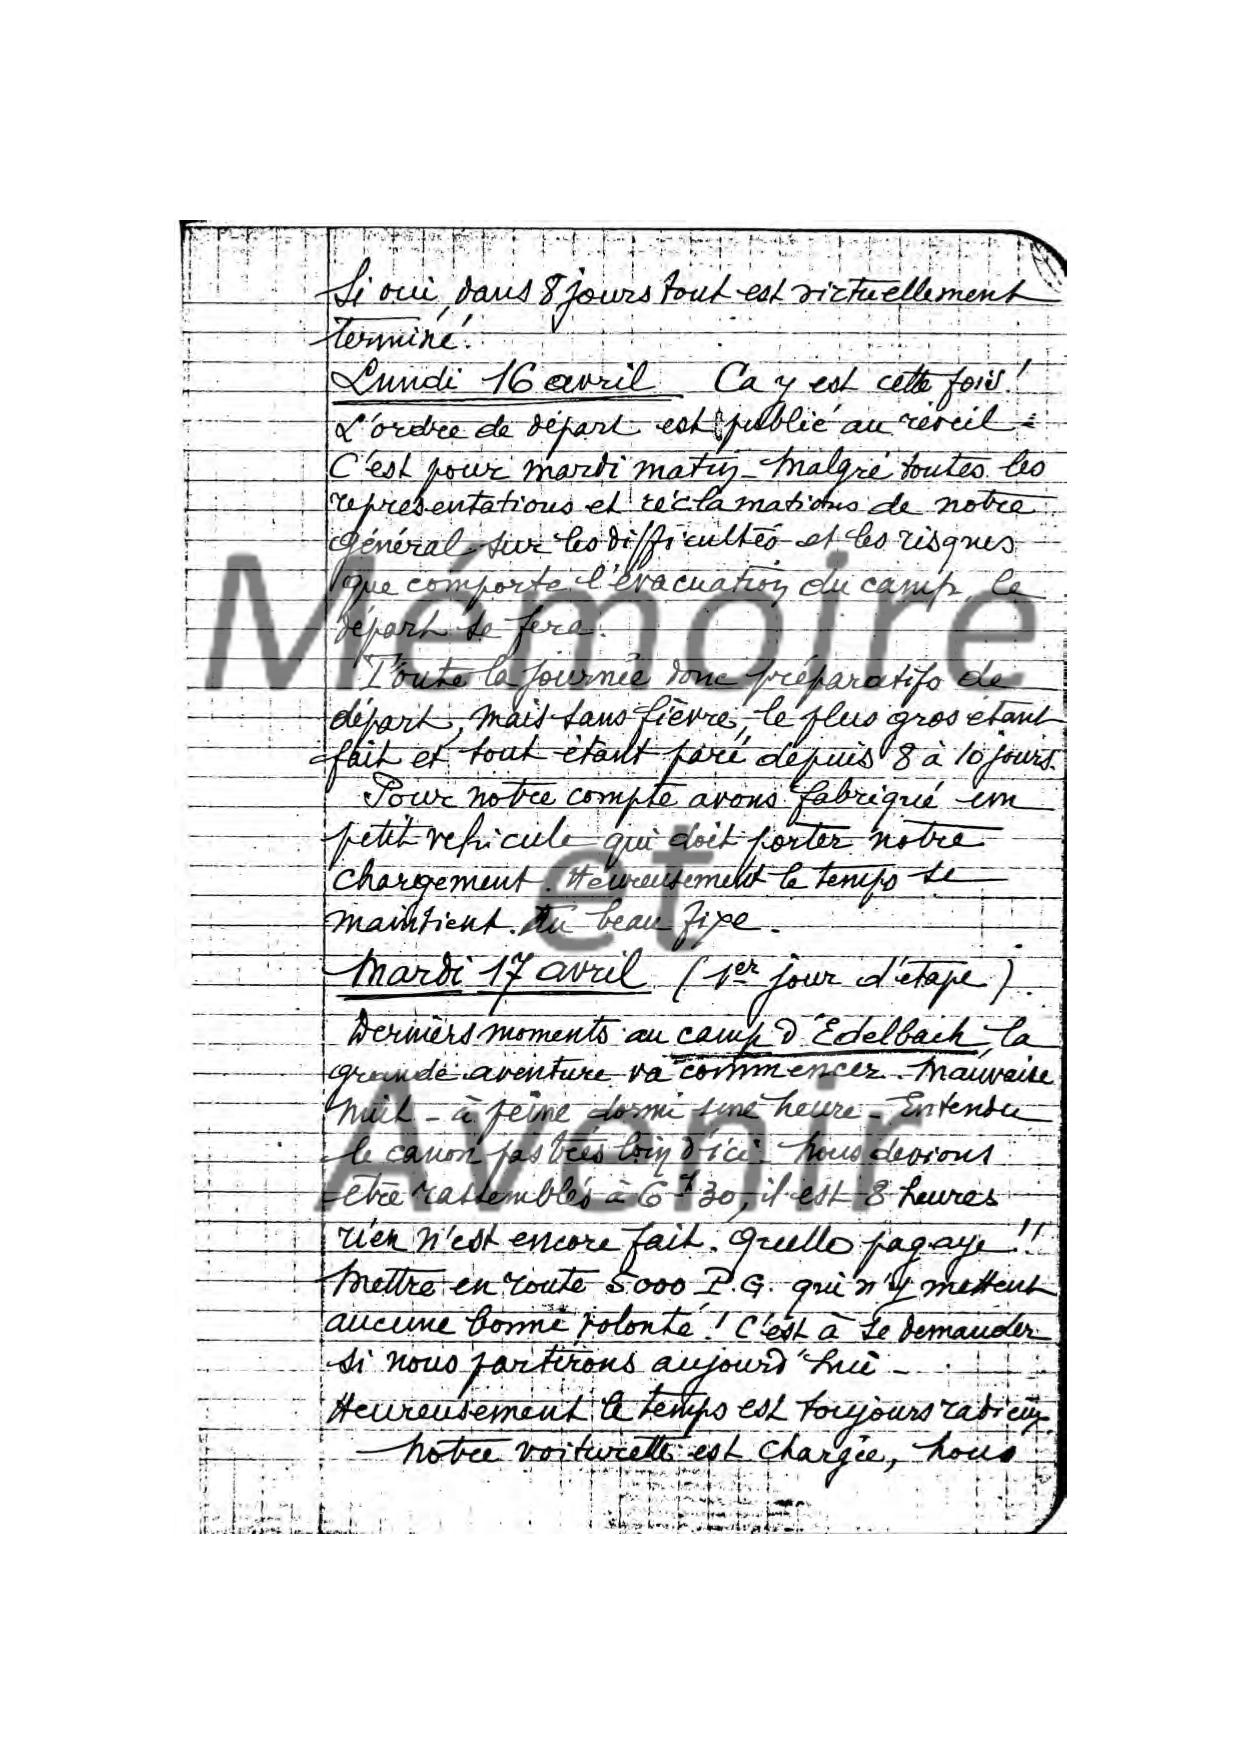 Si oui, dans 8 jours tout est virtuellement
terminé.
Lundi 16 avril Ca y est cette fois!
L'ordre de départ est publié au réveil -
C'est pour mardi matin - Malgré toutes les
représentations et réclamations de notre
général sur les difficultés et les risques
que comporte l'évacuation du camp, le
départ se fera.
Toute la journée donc préparatifs de
départ, mais sans fièvre, le plus gros étant
fait et tout étant paré depuis 8 à 10 jours.
Pour notre compte avons fabriqué un
petit vehicule qui doit porter notre
chargement. Heureusement le temps se
maintient. Au beau fixe.
Mardi 17 avril (1er jour d'étape).
Derniers moments au camp d'Edelbach, la
grande aventure va commencer. Mauvaise
nuit - à peine dormi une heure - Entendu
le canon pas très loin d'ici. Nous devions
être rassemblés à 6h30, il est 8 heures
rien n'est encore fait. Quelle pagaye!!
Mettre en route 5000 P.G. qui n'y mettent
aucune bonne volonté! C'est à se demander
si nous partirons aujourd'hui -
Heureusement le temps est toujours radieux.
Notre voiturette est chargée, nous
Mémoire
et
Avenir